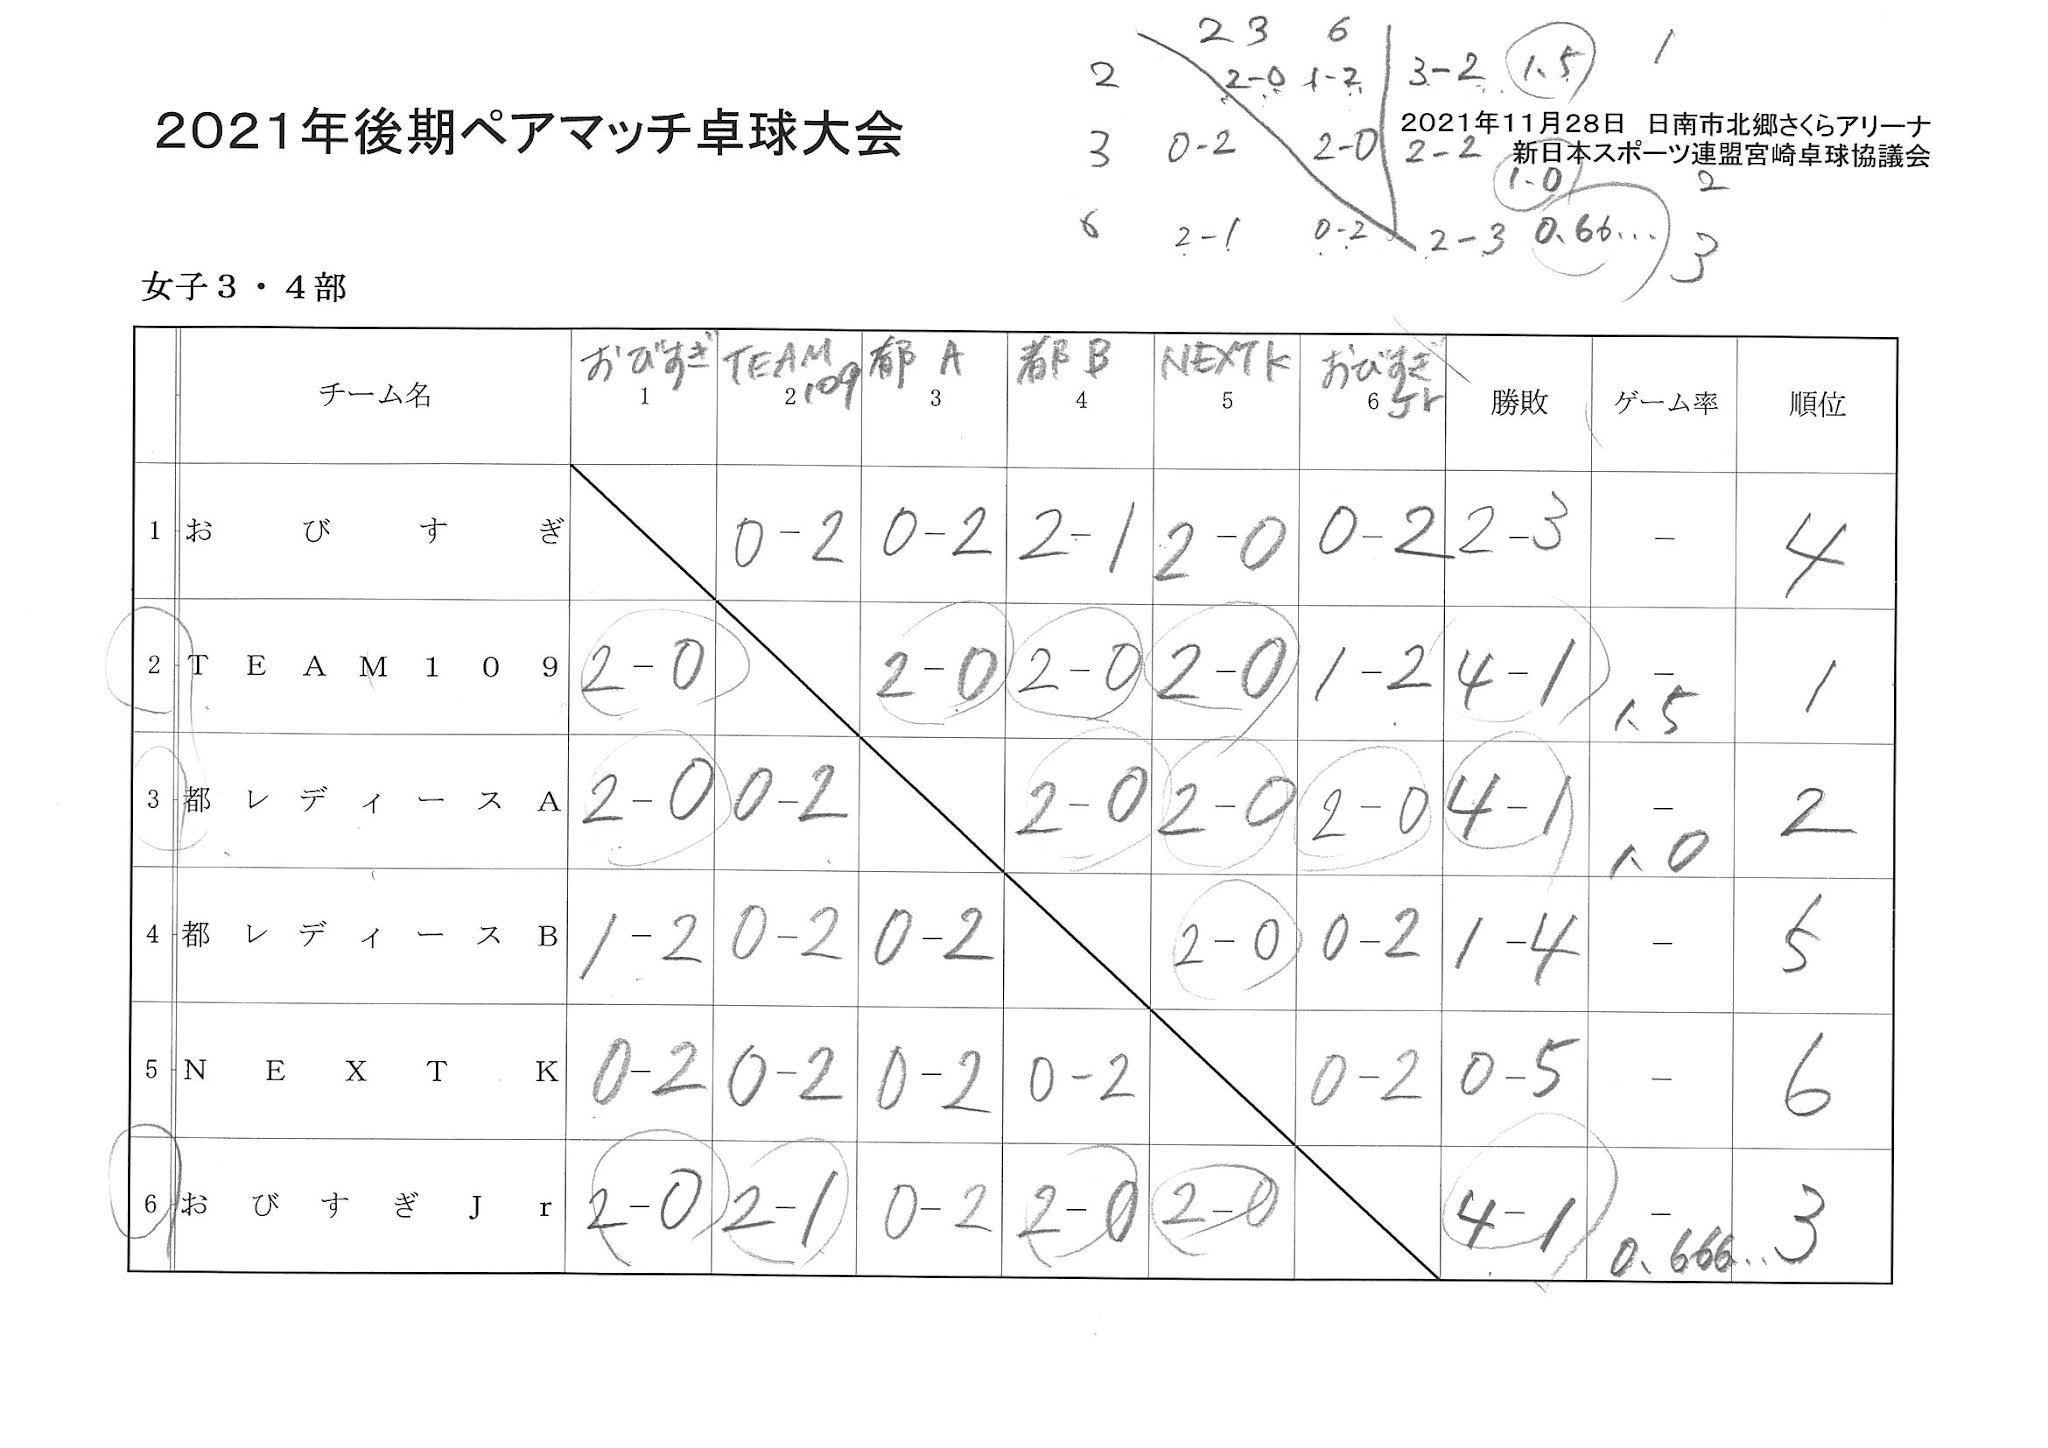 2 3 6
2 2-0 1-2 3-2 1.5 1
2021年後期ペアマッチ卓球大会
2021年11月28日 日南市北郷さくらアリーナ
3 0-2 2-0 2-2
新日本スポーツ連盟宮崎卓球協議会
1.0 2
6 2-1 0-2 2-3 0.66... 3
女子3・4部
おびすぎ TEAM 109 都A 都B NEXTK おびすぎ Jr
チーム名 1 2 3 4 5 6 勝敗 ゲーム率 順位
1 おびすぎ 0-2 0-2 2-1 2-0 0-2 2-3 - 4
2 TEAM109 2-0 2-0 2-0 2-0 1-2 4-1 - 1.5 1
3 都レディースA 2-0 0-2 2-0 2-0 2-0 4-1 - 1.0 2
4 都レディースB 1-2 0-2 0-2 2-0 0-2 1-4 - 5
5 NEXT K 0-2 0-2 0-2 0-2 0-2 0-5 - 6
6 おびすぎJr 2-0 2-1 0-2 2-0 2-0 4-1 - 0.666... 3